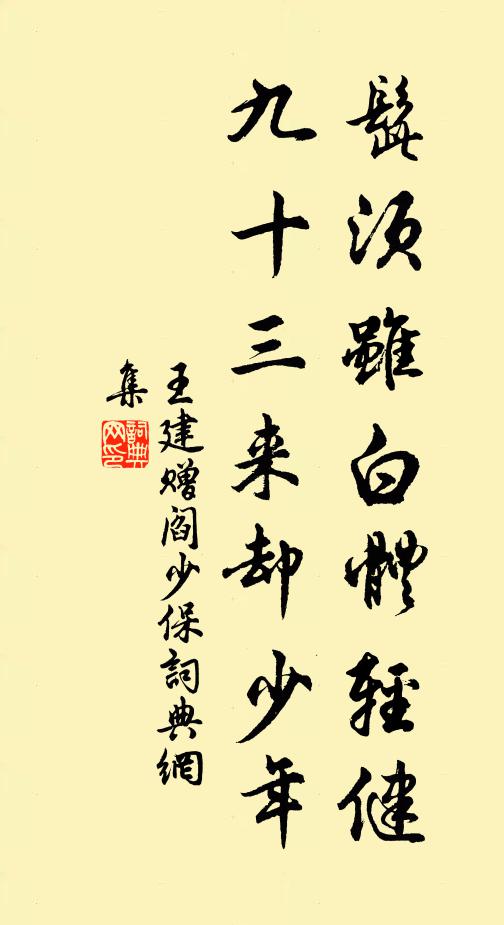 髭須雖白體輕健
九十三来却少年
王建贈閻少保詞典網
集
詞典
网印